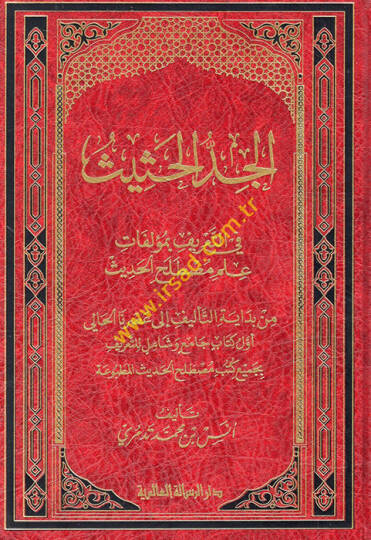 الجد الحثيث
في التعريف بمؤلفات
علم مصطلح الحديث
من بداية التأليف إلى عصرنا الحالي
أول كتاب جامع وشامل للتعريف
بجميع كتب مصطلح الحديث المطبوعة
تأليف
أنس بن محمد تدمري
دار الرسالة العالمية
www.irsad.com.tr